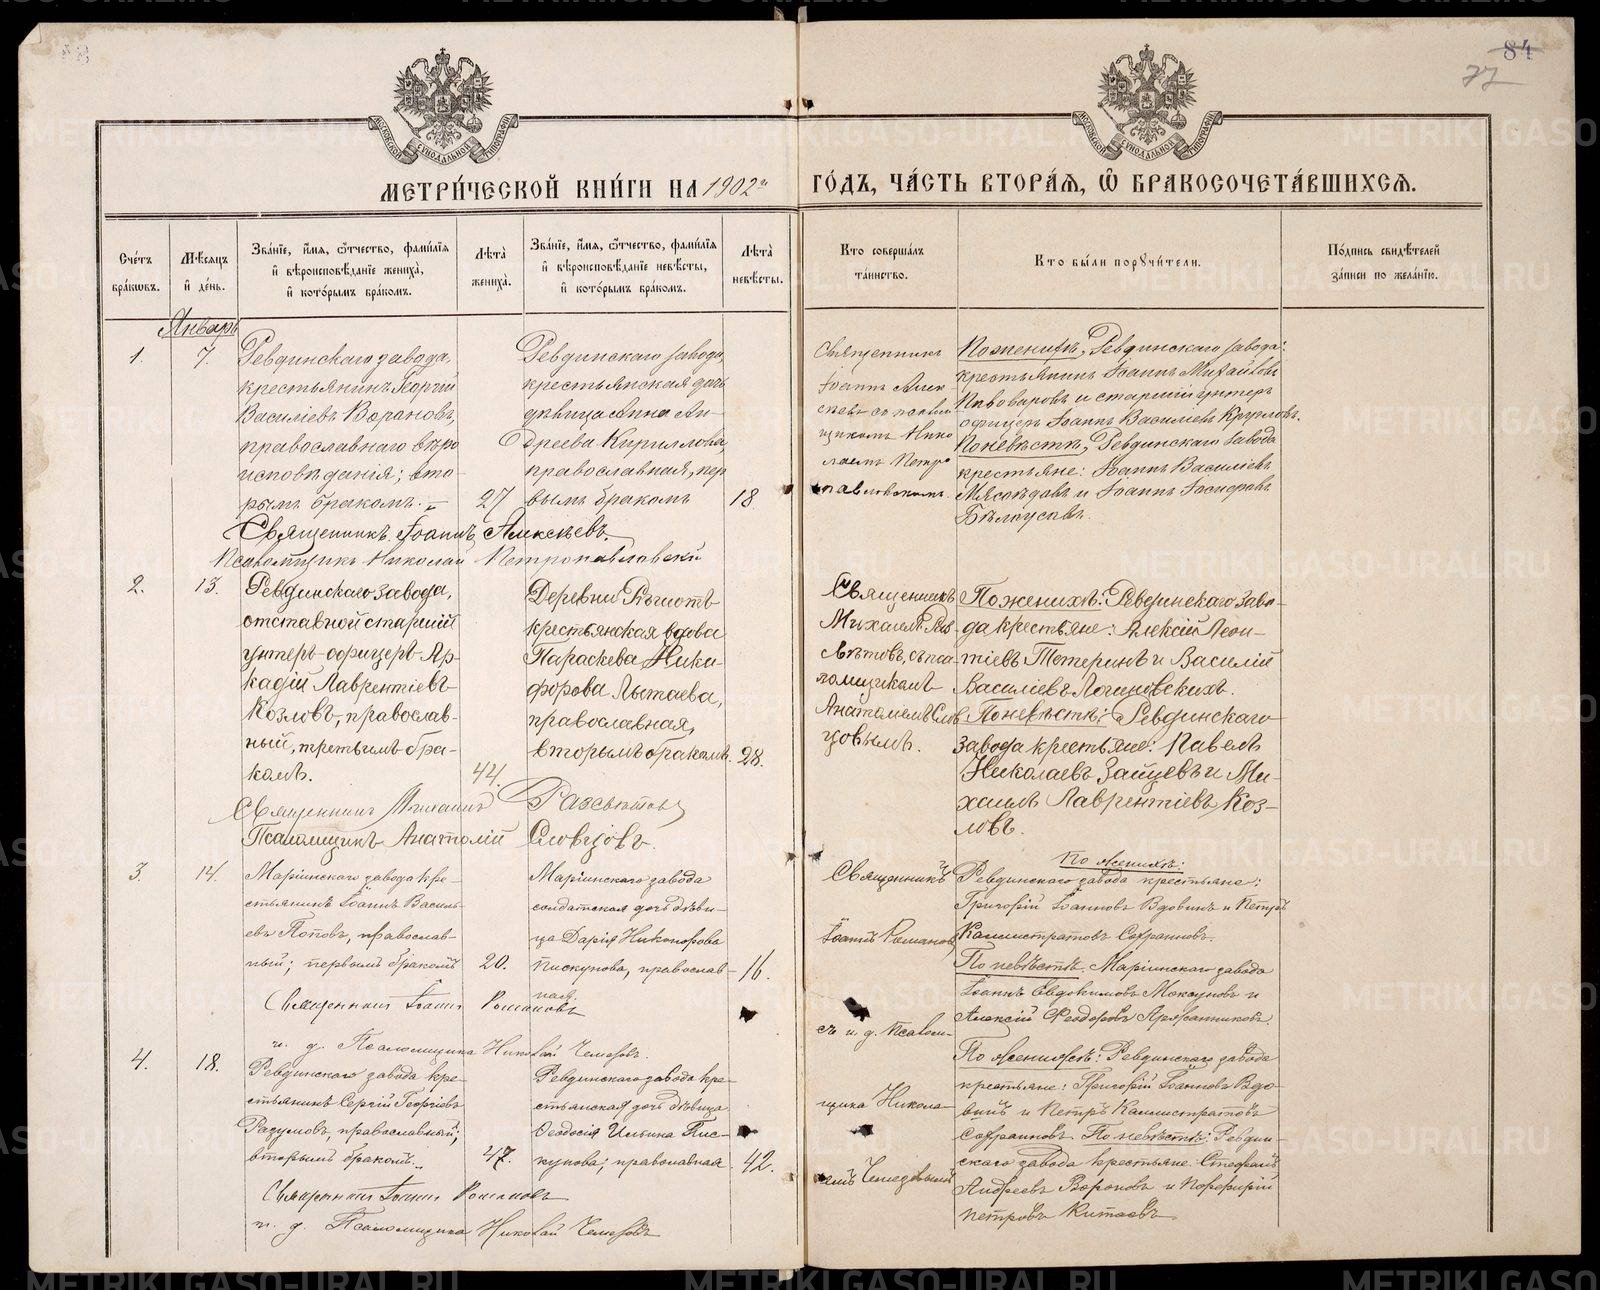 84
77
МЕТРИ́ЧЕСКОЙ КНИ́ГИ НА 1902й ГО́ДЪ, ЧА́СТЬ ВТОРА́Я, Ѡ҆ БРАКОСОЧЕТА́ВШИХСЯ.
Сче́тъ бра́кѡвъ.
Мѣ́сяцъ и҆ де́нь.
Зва́нїе, и҆́мя, ѻ҆́тчество, фами́лїя и҆ вѣроисповѣ́данїе жениха̀, и҆ кото́рымъ бра́комъ.
Лѣ́та жениха̀.
Зва́нїе, и҆́мя, ѻ҆́тчество, фами́лїя и҆ вѣроисповѣ́данїе невѣ́сты, и҆ кото́рымъ бра́комъ.
Лѣ́та невѣ́сты.
Кто соверша́лъ та́инство.
Кто бы́ли порꙋчи́тели.
По́дпись свидѣ́телей за́писи по жела́нїю.
Январь
1.
7.
Ревдинскаго завода,
крестьянинъ Георгій
Василіевъ Вороновъ,
православнаго вѣро
исповѣданія; вто-
рымъ бракомъ.
27
Ревдинскаго завода,
крестьянская дочь
дѣвица Анна Ан-
дреева Кириллова,
православная, пер
вымъ бракомъ
18
Священникъ
Іоаннъ Алек-
сѣевъ со псалом
щикомъ Нико
лаемъ Петро
павловскимъ.
По женихѣ, Ревдинскаго завода:
крестьянинъ Іоаннъ Михайловъ
Пивоваровъ и старшій унтеръ
офицеръ Іоаннъ Василіевъ Кругловъ.
По невѣстѣ, Ревдинскаго завода
крестьяне: Іоаннъ Василіевъ
Мясоѣдовъ и Іоаннъ Іосифовъ
Бѣлоусовъ.
Священникъ Іоаннъ Алексѣевъ.
Псаломщикъ Николай Петропавловскій
2.
13.
Ревдинскаго завода,
отставной старшій
унтеръ-офицеръ Ар-
кадій Лаврентіевъ
Козловъ, православ-
ный, третьимъ бра-
комъ.
44.
Деревни
крестьянская вдова
Параскева Ники-
форова Лытаева,
православная,
вторымъ бракомъ.
28.
Священникъ
Михаилъ Раз-
свѣтовъ, съ пса-
ломщикомъ
Анатоліемъ Слов
цовымъ.
По женихѣ: Ревдинскаго заво-
да крестьяне: Алексій Леон-
тіевъ Тетеринъ и Василій
Василіевъ Логиновскихъ.
По невѣстѣ: Ревдинскаго
завода крестьяне: Павелъ
Николаевъ Зайцевъ и Ми-
хаилъ Лаврентіевъ Коз-
ловъ.
Священникъ Михаилъ Разсвѣтовъ
Псаломщикъ Анатолій Словцовъ.
3.
14.
Маріинскаго завода кре-
стьянинъ Іоаннъ Василь-
евъ Поповъ, православ-
ный; первымъ бракомъ
20.
Маріинскаго завода
солдатская дочь дѣви-
ца Дарія Никонорова
Пискунова, православ-
ная.
16.
Священникъ
Іоаннъ Романовъ
съ и. д. псалом-
щика Никола-
емъ
По женихѣ:
Ревдинскаго завода крестьяне:
Григорій Іоанновъ Вдовинъ и Петръ
Каллистратовъ Софроновъ.
По невѣстѣ: Маріинскаго завода
Іоаннъ Евдокимовъ Мокроуновъ и
Алексій Феодоровъ Аржанниковъ.
Священникъ Іоаннъ Романовъ
и. д. Псаломщика Николай
4.
18.
Ревдинскаго завода кре-
стьянинъ Сергій Георгіевъ
Разумовъ, православный;
вторымъ бракомъ.
47.
Ревдинскаго завода кре-
стьянская дочь дѣвица
Феодосія Ильина Пис-
кунова; православная.
42.
По женихѣ: Ревдинскаго завода
крестьяне: Григорій Іоанновъ Вдо-
винъ и Петръ Каллистратовъ
Софроновъ. По невѣстѣ: Ревдин-
скаго завода крестьяне: Стефанъ
Андреевъ Вороновъ и Порфирій
Петровъ Китаевъ
Священникъ Іоаннъ Романовъ
и. д. Псаломщика Николай
METRIKI.GASO-URAL.RU